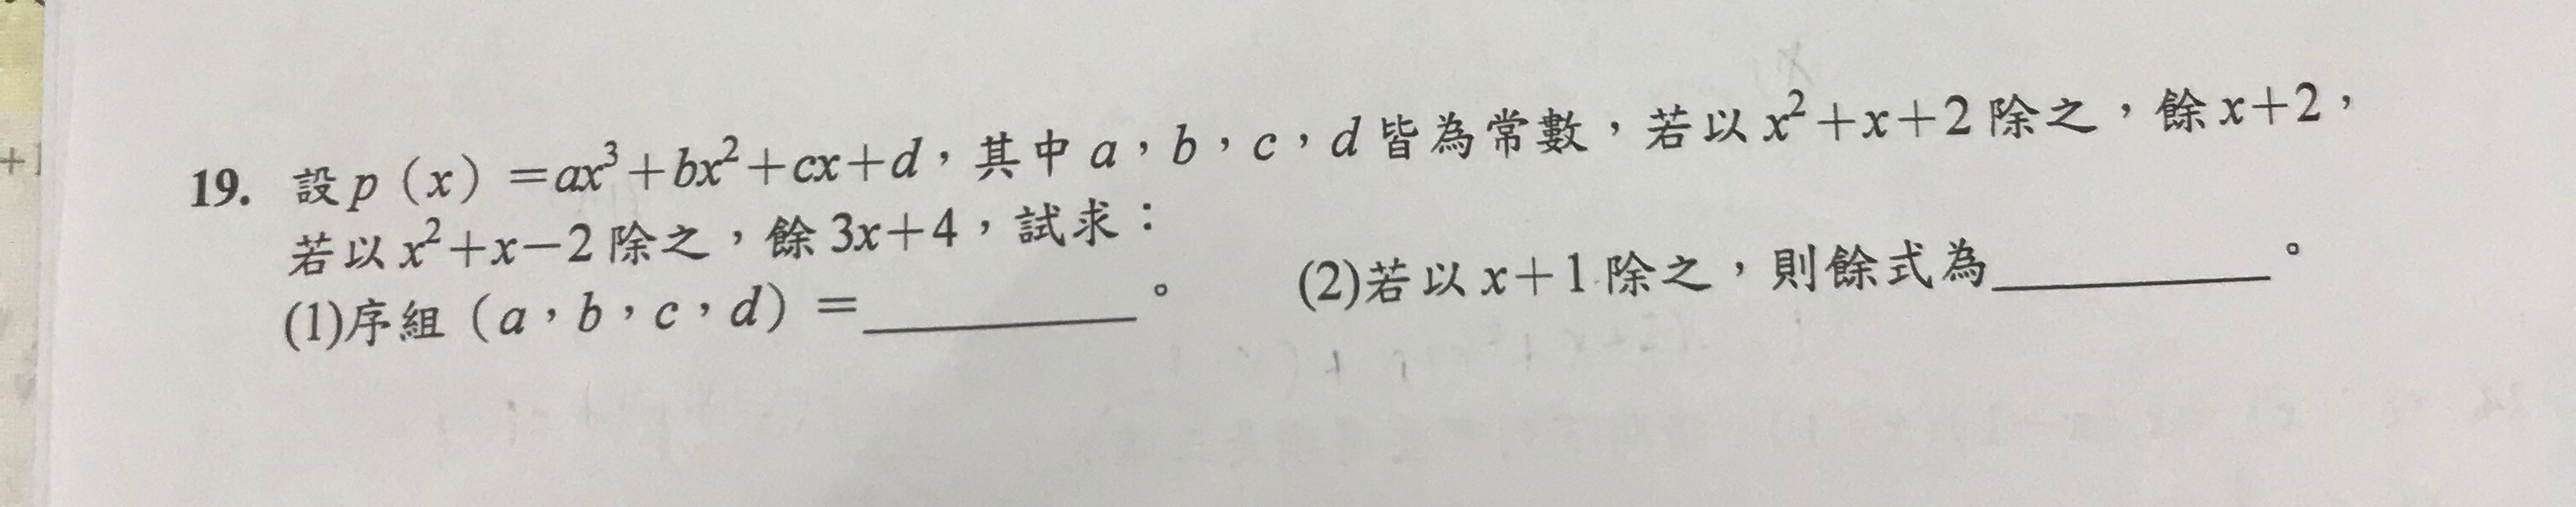 19. 設p(x)=ax³+bx²+cx+d，其中a，b，c，d皆為常數，若以x²+x+2除之，餘x+2，
若以x²+x−2除之，餘3x+4，試求：
(1)序組(a，b，c，d)=＿＿＿＿。 (2)若以x+1除之，則餘式為＿＿＿＿。